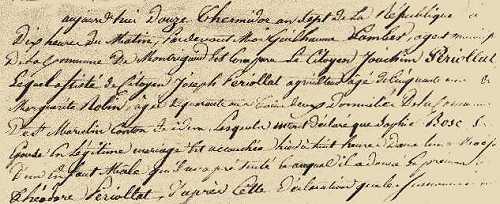 aujourd'hui Douze Thermidor an sept de la République a
Dix heures du Matin, Pardevant Moi Guilhaume Lambert, agent
De la Commune De Montregard est Comparu Le Citoyen Joachim Périollat
Lequel assisté du Citoyen Joseph Periollat agriculteur agé de Cinquante
Marguerite Rolin, agée de quarante Domicilié De la
De St Canton lesquels mont déclaré que Sophie Bosc
Epouse En Légitime mariage Est accouchée hier à huit heures Dans leur
D'un Enfant Male qu'il m'a présenté & auquel il a donné le prenom
Théodore Periollat, d'après Cette déclaration que les